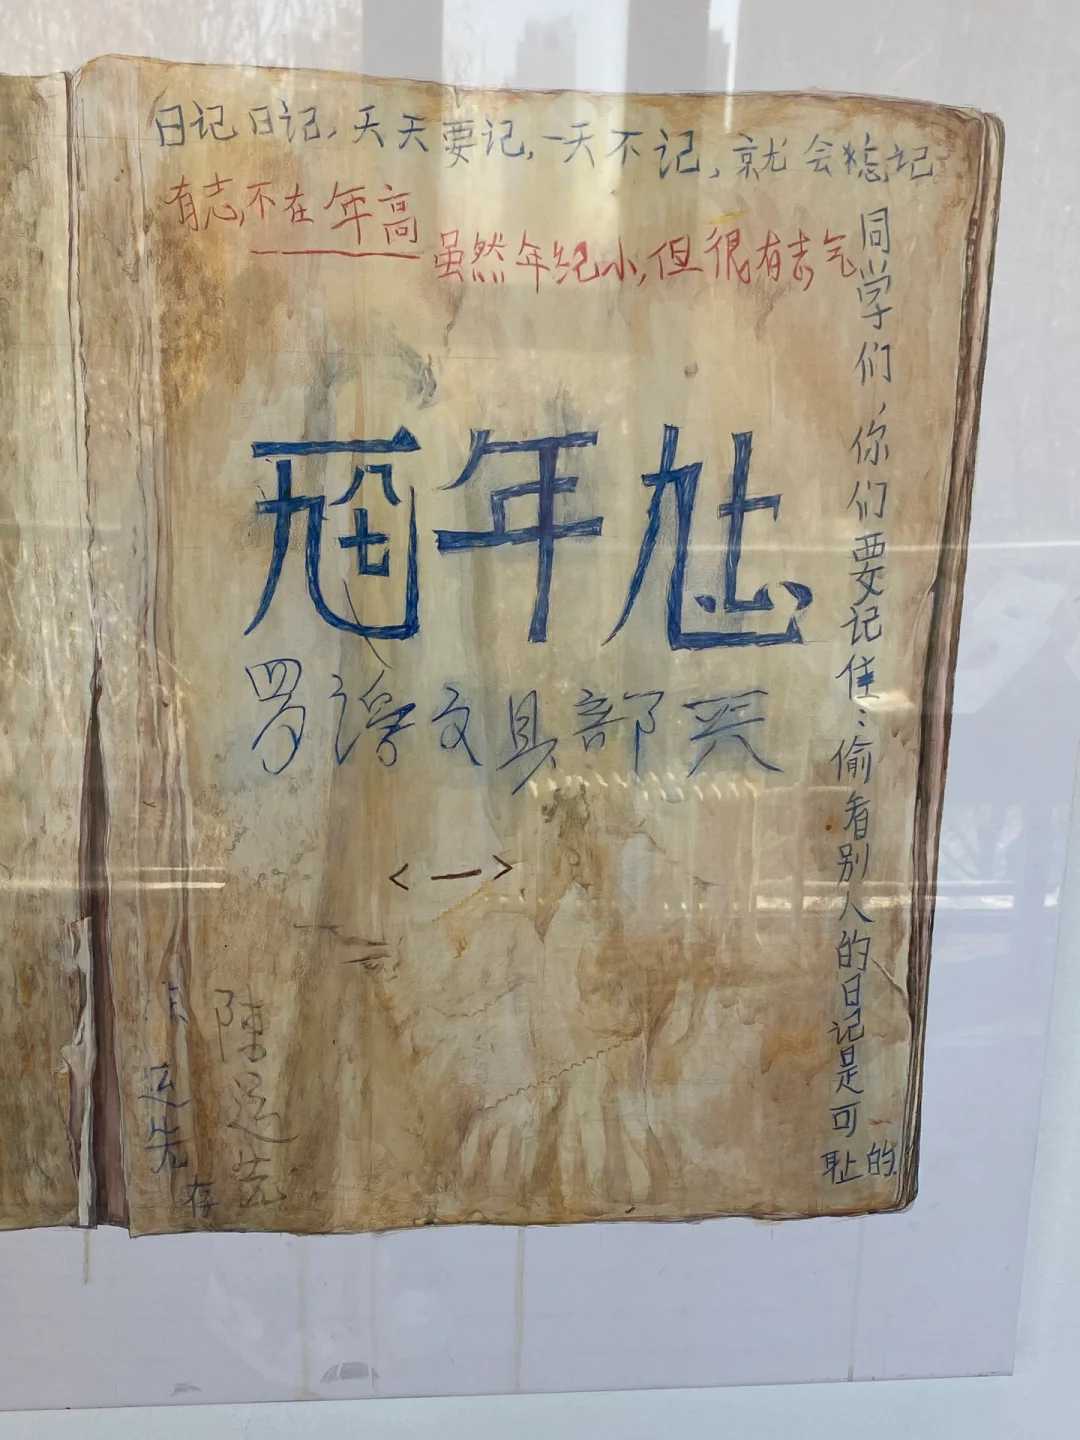 日记日记，天天要记，一天不记，就会忘记
有志不在年高
虽然年纪小，但很有志气
同学们，你们要记住：偷看别人的日记是可耻的.
年
文具部买
<一>
陈运先
运先
存